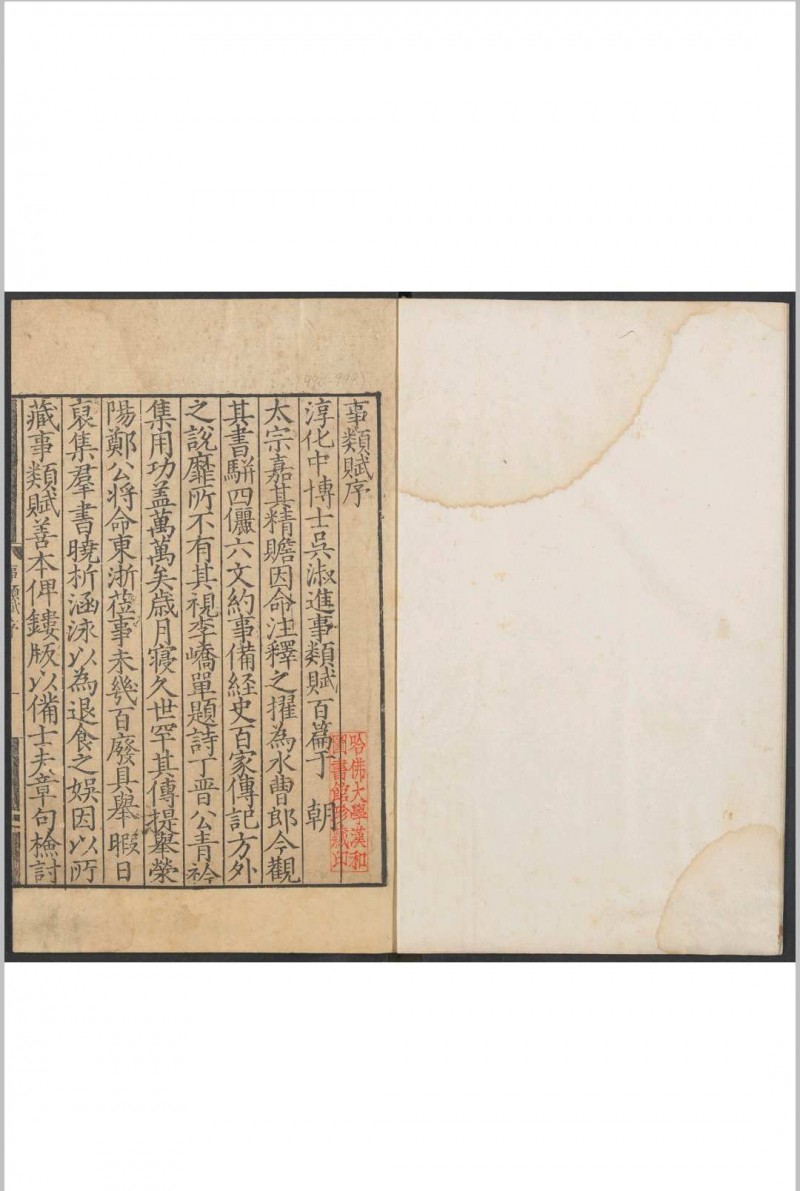 事類賦序
淳化中博士吳淑進事類賦百篇于　朝
太宗嘉其精贍因命注釋之擢為水曹郎今觀
其書駢四儷六文約事備経史百家傳記方外
之說靡所不有其視李嶠單題詩丁晉公青衿
集用功盖萬萬矣歲月寖久世罕其傳提舉滎
陽鄭公將命東浙莅事未幾百廢具舉暇日
裒集羣書曉析涵泳以為退食之娛因以所
藏事類賦善本俾鏤版以備士夫章句檢討
哈佛大學漢和
圖書館珍藏印
事類賦序